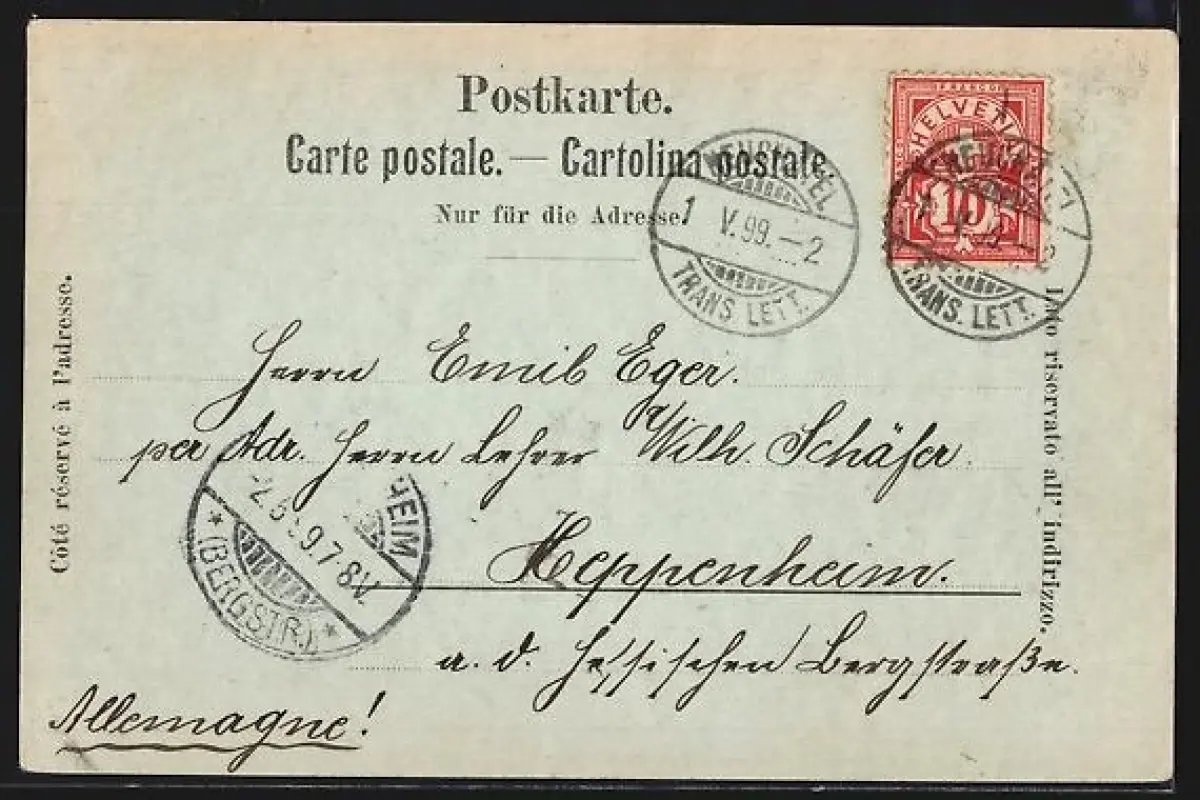 Postkarte.
Carte postale. — Cartolina postale.
Nur für die Adresse.
Côté réservé à l'adresse.
Lato riservato all' indirizzo.
FRANCO
HELVETIA
10
NEUCHATEL
1 V.99.–2
TRANS. LETT.
TRANS. LETT.
Herrn Emil Eger.
per Adr. Herrn Lehrer Wilh. Schäfer.
Heppenheim.
a. d. hessischen Bergstraße.
Allemagne!
HEIM
7-8V.
* (BERGSTR.) *